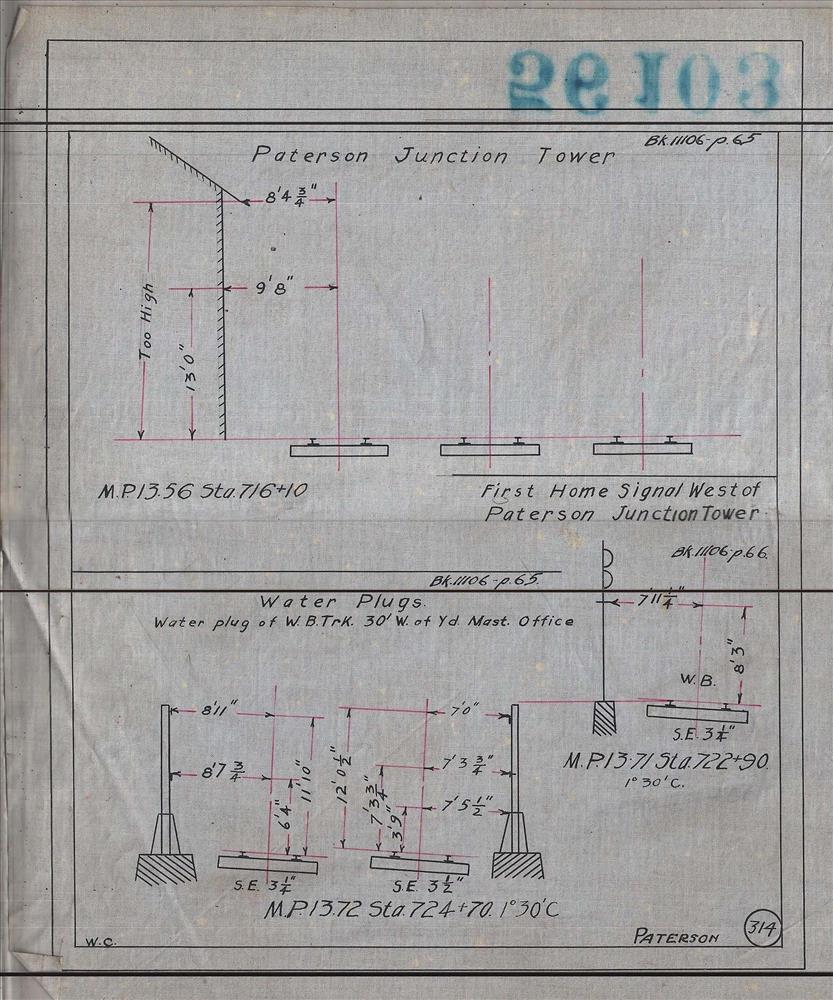 56103
Paterson Junction Tower
Bk.11106-p.65
8'4 3/4"
9'8"
Too High
13'0"
M.P.13.56 Sta.716+10
First Home Signal West of
Paterson Junction Tower
Bk.11106-p.66.
7'11 1/4"
8'3"
W.B.
S.E. 3 1/4"
M.P.13.71 Sta.722+90.
1°30'C.
Bk.11106-p.65.
Water Plugs.
Water plug of W.B.Trk. 30' W. of Yd. Mast. Office
8'11"
8'7 3/4
6'4"
11'10"
S.E. 3 1/4"
12'0 1/2"
7'3 3/4"
3'9"
7'0"
7'3 3/4"
7'5 1/2"
S.E. 3 1/2"
M.P.13.72 Sta.724+70. 1°30'C
W.C.
PATERSON
314